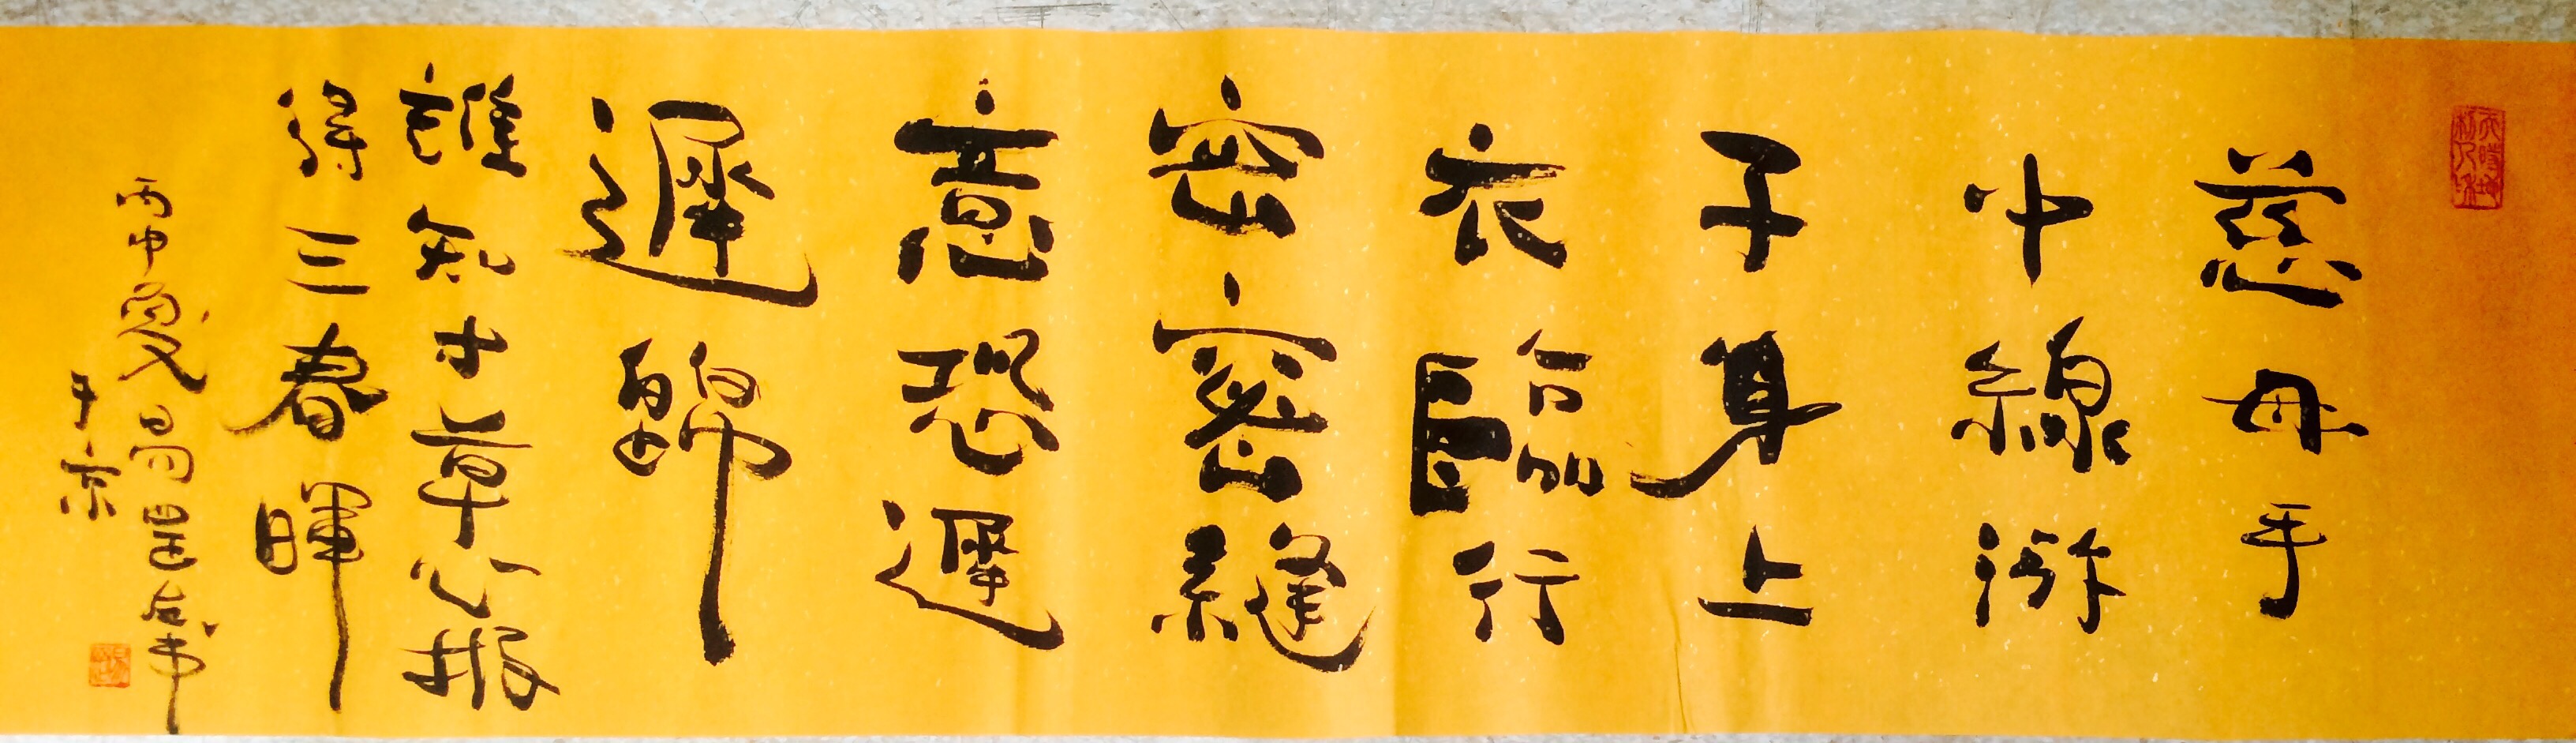 慈母手
中線游
子身上
衣臨行
密密縫
意恐遲
遲歸
誰知寸草心報
得三春暉
丙申夏易罡
于京